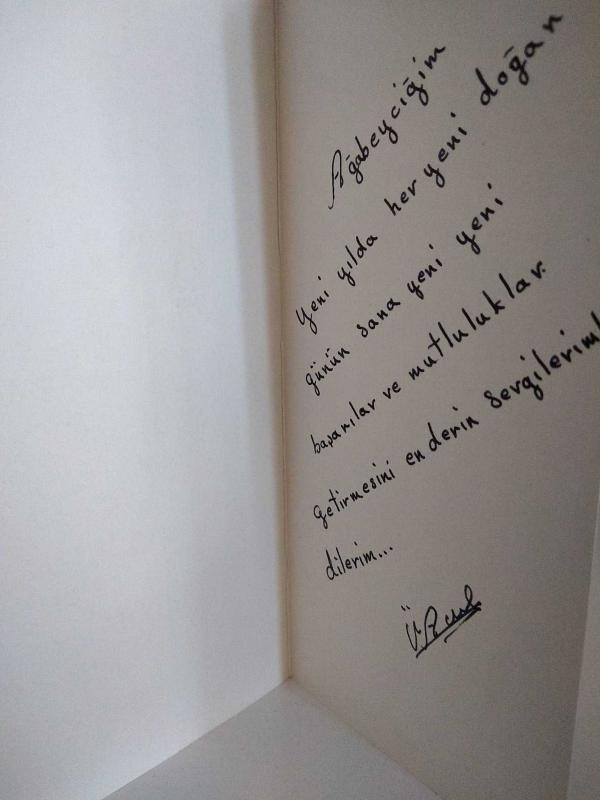 Ağabeyciğim
Yeni yılda her yeni doğan
günün sana yeni yeni
başarılar ve mutluluklar
getirmesini en derin sevgileriml
dilerim...